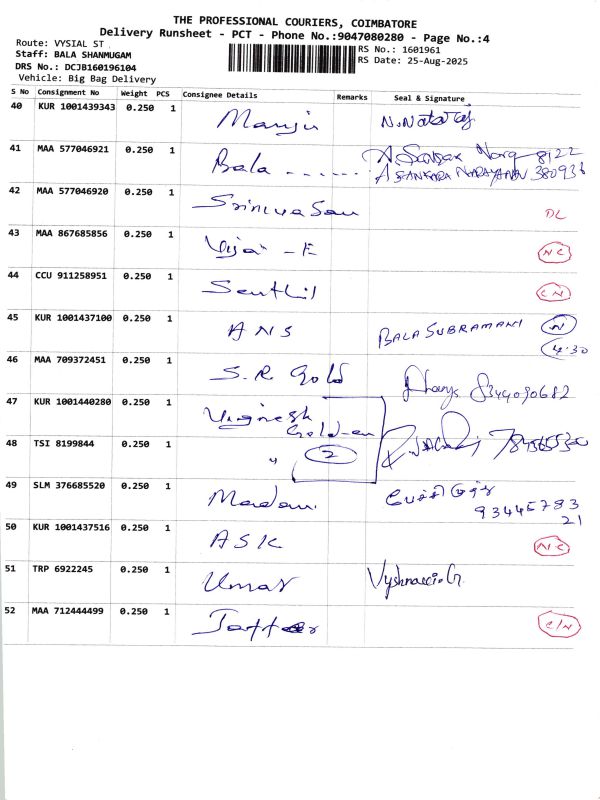 THE PROFESSIONAL COURIERS, COIMBATORE
Delivery Runsheet - PCT - Phone No.:9047080280 - Page No.:4
Route: VYSIAL ST .
Staff: BALA SHANMUGAM
DRS No.: DCJB160196104
Vehicle: Big Bag Delivery
RS No.: 1601961
RS Date: 25-Aug-2025
S No Consignment No Weight PCS Consignee Details Remarks Seal & Signature
40 KUR 1001439343 0.250 1 Manju N.Nataraj
41 MAA 577046921 0.250 1 Bala ...... 8122
A SANKARA NARAYANAN 380936
42 MAA 577046920 0.250 1 Srinivasan DL
43 MAA 867685856 0.250 1 Vijai - E NC
44 CCU 911258951 0.250 1 Senthil CN
45 KUR 1001437100 0.250 1 ANS BALA SUBRAMANI N
4.30
46 MAA 709372451 0.250 1 S.R Gold 8344090682
47 KUR 1001440280 0.250 1 Vignesh
Golden
48 TSI 8199844 0.250 1 " 2
49 SLM 376685520 0.250 1 Madam
93445783
21
50 KUR 1001437516 0.250 1 ASK NC
51 TRP 6922245 0.250 1 Umar
52 MAA 712444499 0.250 1 Jaffer C/N